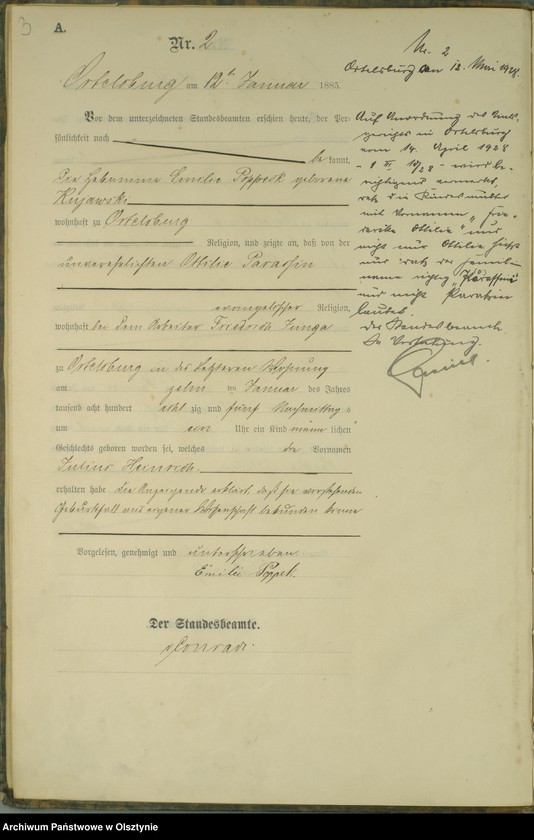 3
A.
Nr. 2
Ortelsburg am 12ten Januar 1885.
Vor dem unterzeichneten Standesbeamten erschien heute, der Per-
sönlichkeit nach
be kannt,
die Hebamme Emilie Poppeck geborene
Kujawski
wohnhaft zu Ortelsburg
Religion, und zeigte an, daß von der
unverehelichten Ottilie
evangelischer Religion,
wohnhaft bei dem Arbeiter Friedrich
zu Ortelsburg in des Letzteren Wohnung
am zehn ten Januar des Jahres
tausend acht hundert acht zig und fünf Nachmittags
um ein Uhr ein Kind männ lichen
Geschlechts geboren worden sei, welches die Vornamen
Julius Heinrich
erhalten habe. Die Anzeigende erklärt, daß sie vorstehenden
Geburtsfall aus eigener Wissenschaft bekunden könne
Vorgelesen, genehmigt und unterschrieben
Emilie
Der Standesbeamte.
Conrad.
Nr. 2
Ortelsburg am 12. Mai 1928.
Auf Anordnung des Amts-
gerichts in Ortelsburg
vom 14. April 1928
wird be-
richtigend vermerkt,
daß die Kindesmutter
mit Vornamen „Frie-
derike Ottilie" und
nicht nur Ottilie heißt
und daß der Familien-
name richtig
und nicht
lautet.
Der Standesbeamte
In Vertretung.
Archiwum Państwowe w Olsztynie